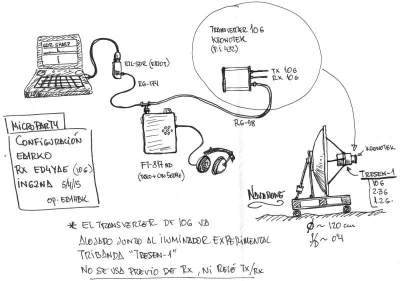 TRANSVERTER 10G
KRONOTEK
(PI 432)
TX 10G
RX 10G
RG-174
RG-58
KRONOTEK
TRESEN-1
10G
2.3G
1.2G
NAVARONE
Ø ~ 120 cm
f/D ~ 0'4
MICROPARTY
CONFIGURACIÓN
EA1RKO
RX ED4YAE (10G)
IN62NA 5/4/15
* EL TRANSVERTER DE 10G VA
ALOJADO JUNTO AL ILUMINADOR EXPERIMENTAL
TRIBANDA "TRESEN-1"
NO SE USA PREVIO DE RX, NI RELÉ TX/RX